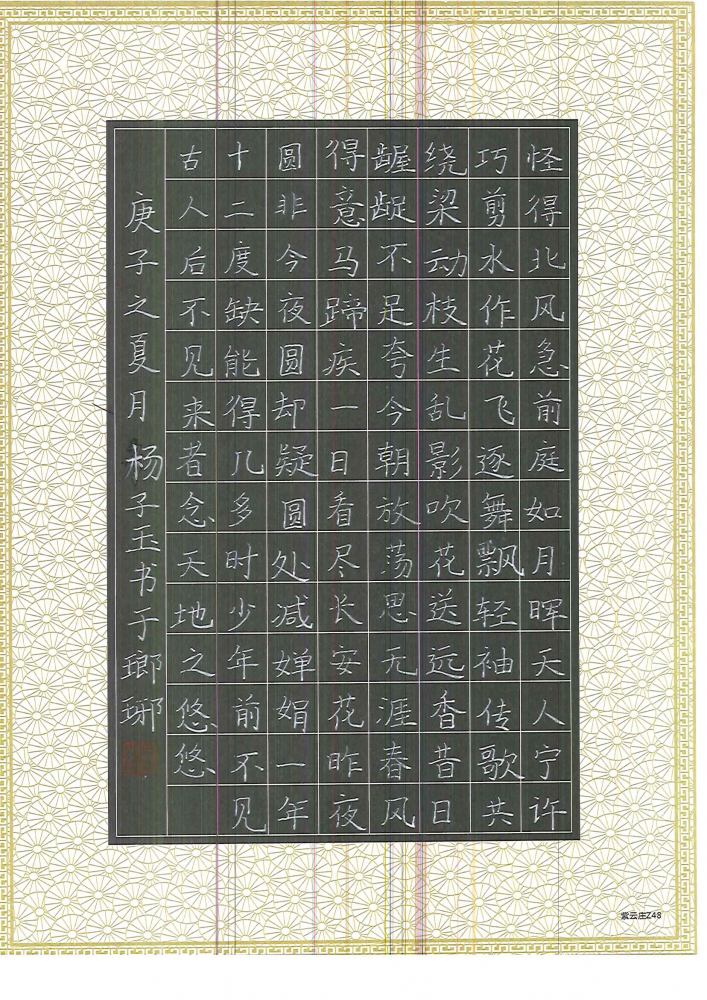 怪得北风急前庭如月晖天人宁许
巧剪水作花飞逐舞飘轻袖传歌共
绕梁动枝生乱影吹花送远香昔日
龌龊不足夸今朝放荡思无涯春风
得意马蹄疾一日看尽长安花昨夜
圆非今夜圆却疑圆处减婵娟一年
十二度缺能得几多时少年前不见
古人后不见来者念天地之悠悠
庚子之夏月杨子玉书于瑯琊
紫云庄Z48